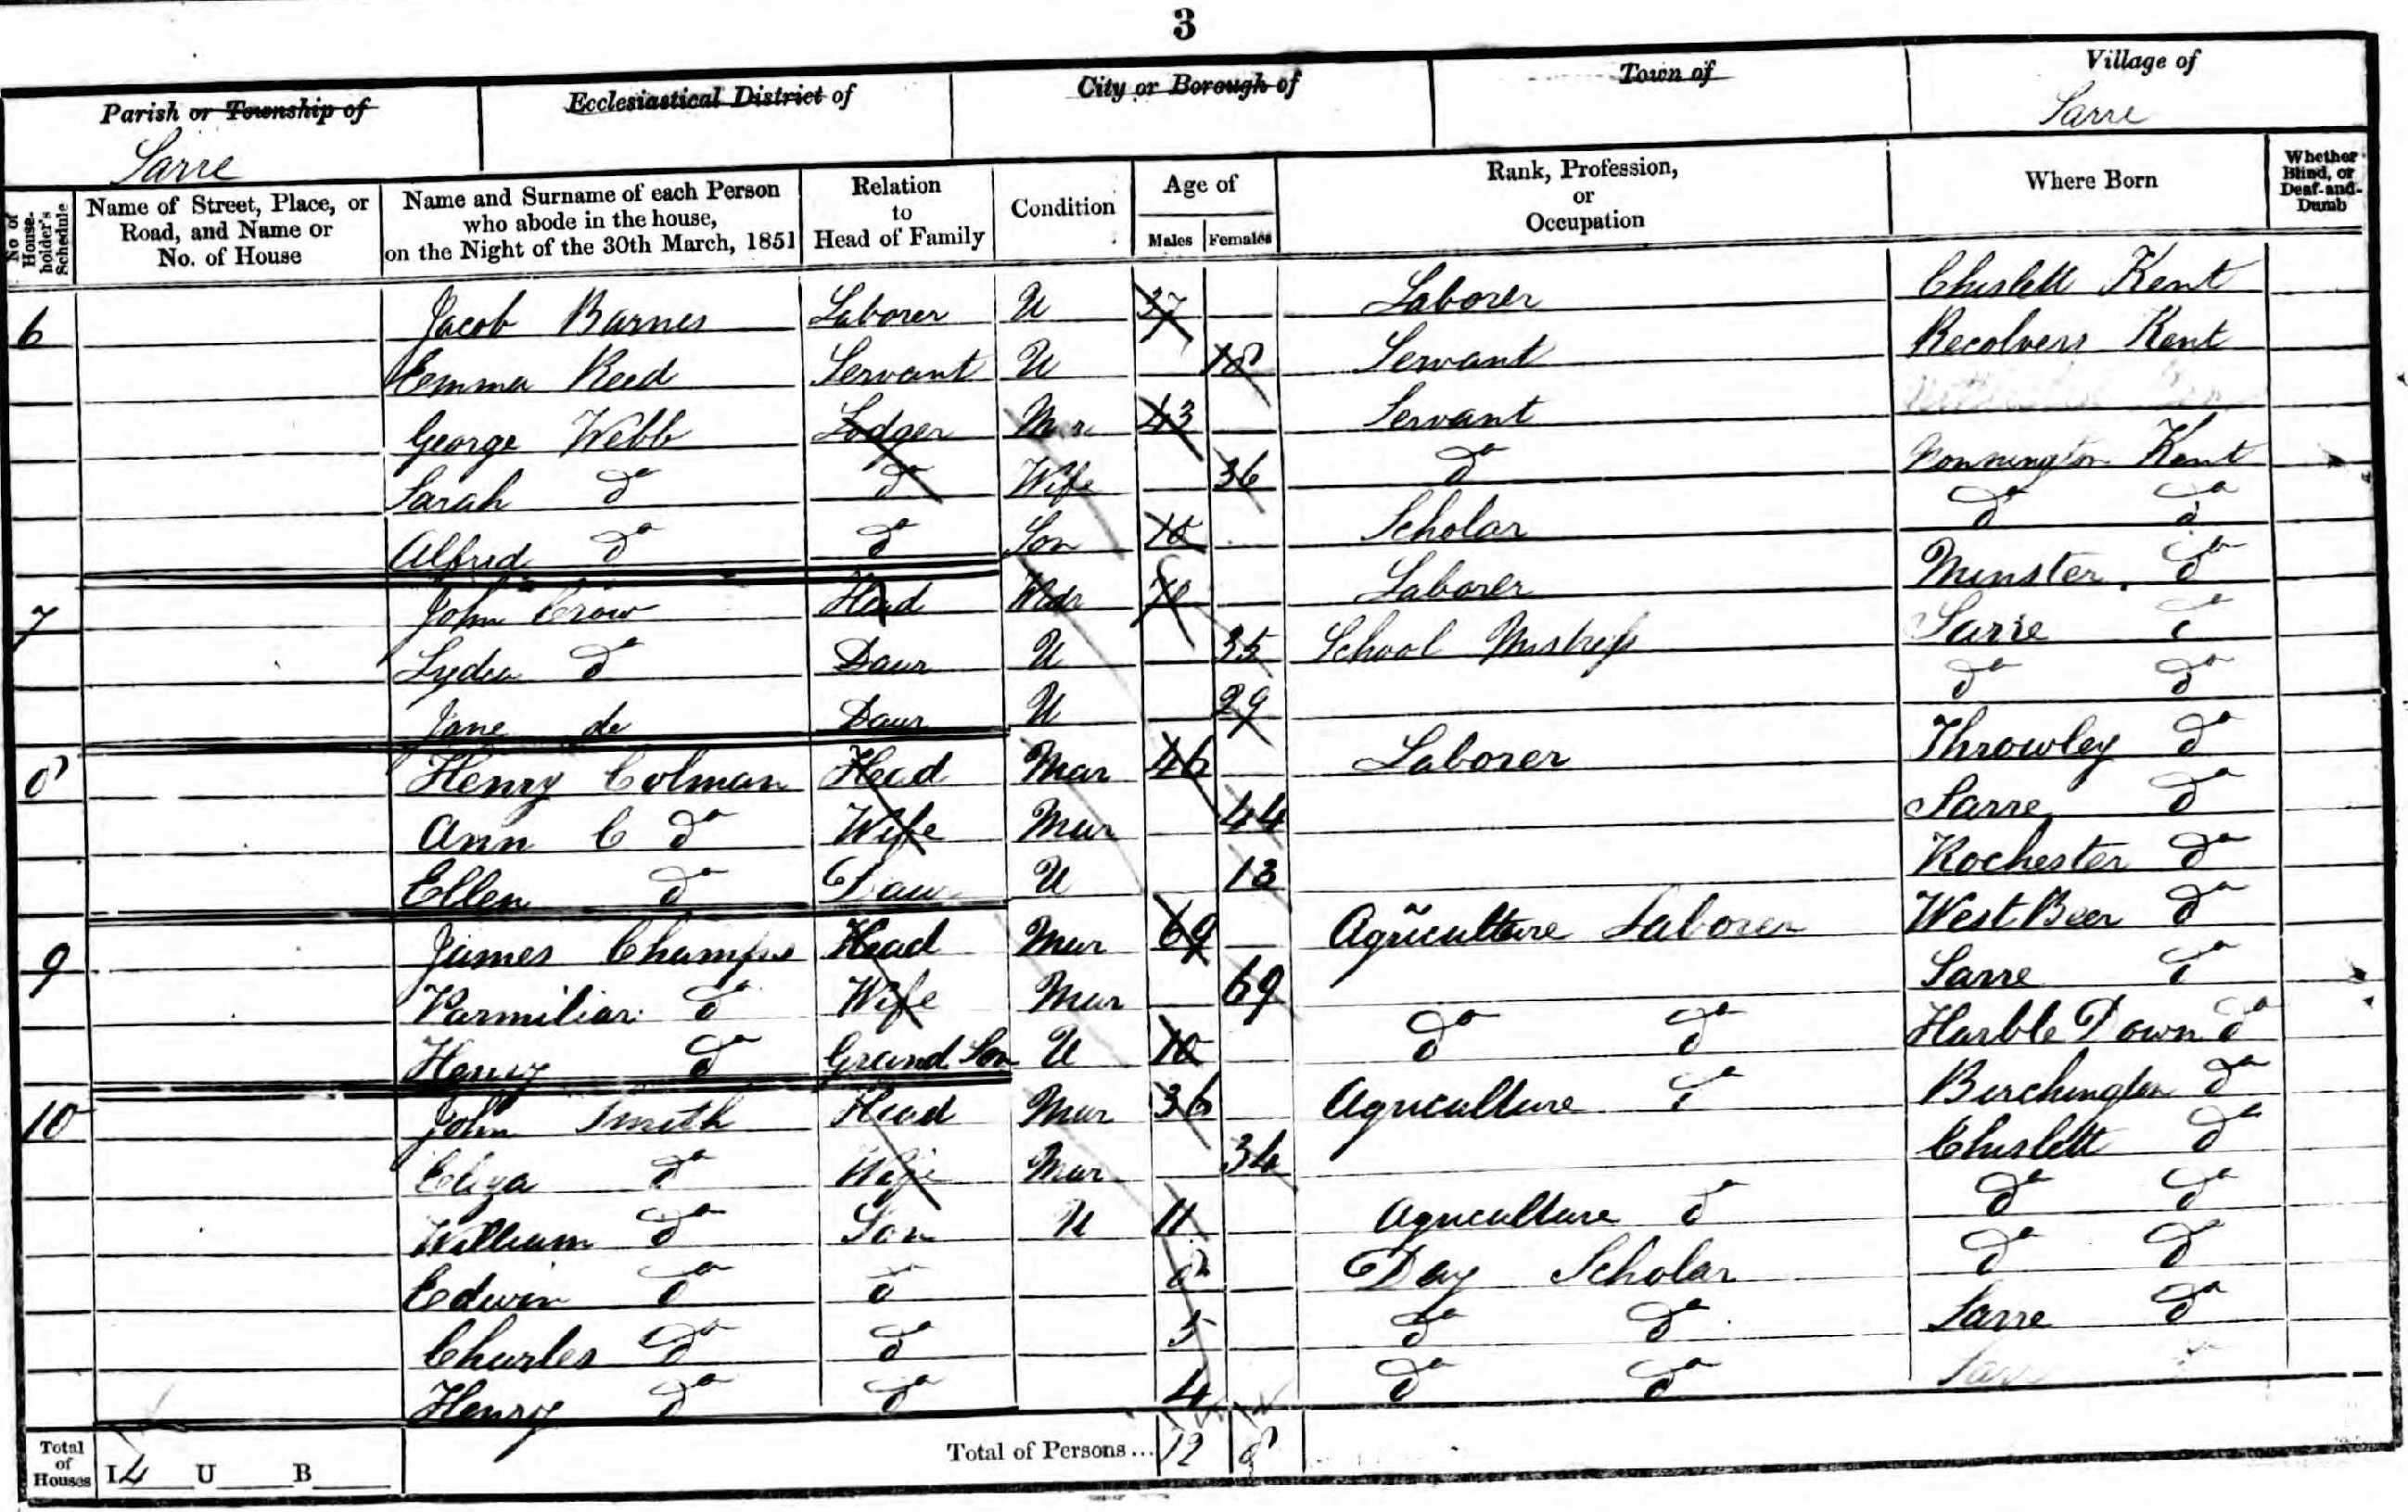 3
Parish or Township of Ecclesiastical District of City or Borough of Town of Village of
Sarre Sarre
No of House-holder's Schedule Name of Street, Place, or Road, and Name or No. of House Name and Surname of each Person who abode in the house, on the Night of the 30th March, 1851 Relation to Head of Family Condition Age of Males Females Rank, Profession, or Occupation Where Born Whether Blind, or Deaf-and-Dumb
6 Jacob Barnes Laborer U 37 Laborer Chislett Kent
Emma Reed Servant U 18 Servant Recolvers Kent
George Webb Lodger Mar 43 Servant
Sarah do do Wife 36 do Nonnington Kent
Alfred do do Son 10 Scholar do do
7 John Crow Head Wdr Laborer Minster do
Lydia do Daur U 35 School Mistress Sarre do
Jane do Daur U 29 do do
8 Henry Colman Head Mar 46 Laborer Throwley do
Ann C do Wife Mar 44 Sarre do
Ellen do Daur U 13 Rochester do
9 James Champs Head Mar 69 Agriculture Laborer West Beer do
Parmiliar do Wife Mar 69 Sarre do
Henry do Grand Son U 10 do do Harble Down do
10 John Smith Head Mar 36 Agriculture do Birchington do
Eliza do Wife Mar 34 Chislett do
William do Son U 11 Agriculture do do do
Edwin do do 8 Day Scholar do do
Charles do do 5 do do Sarre do
Henry do do 4 do do
Total of Houses I 4 U B Total of Persons... 12 8